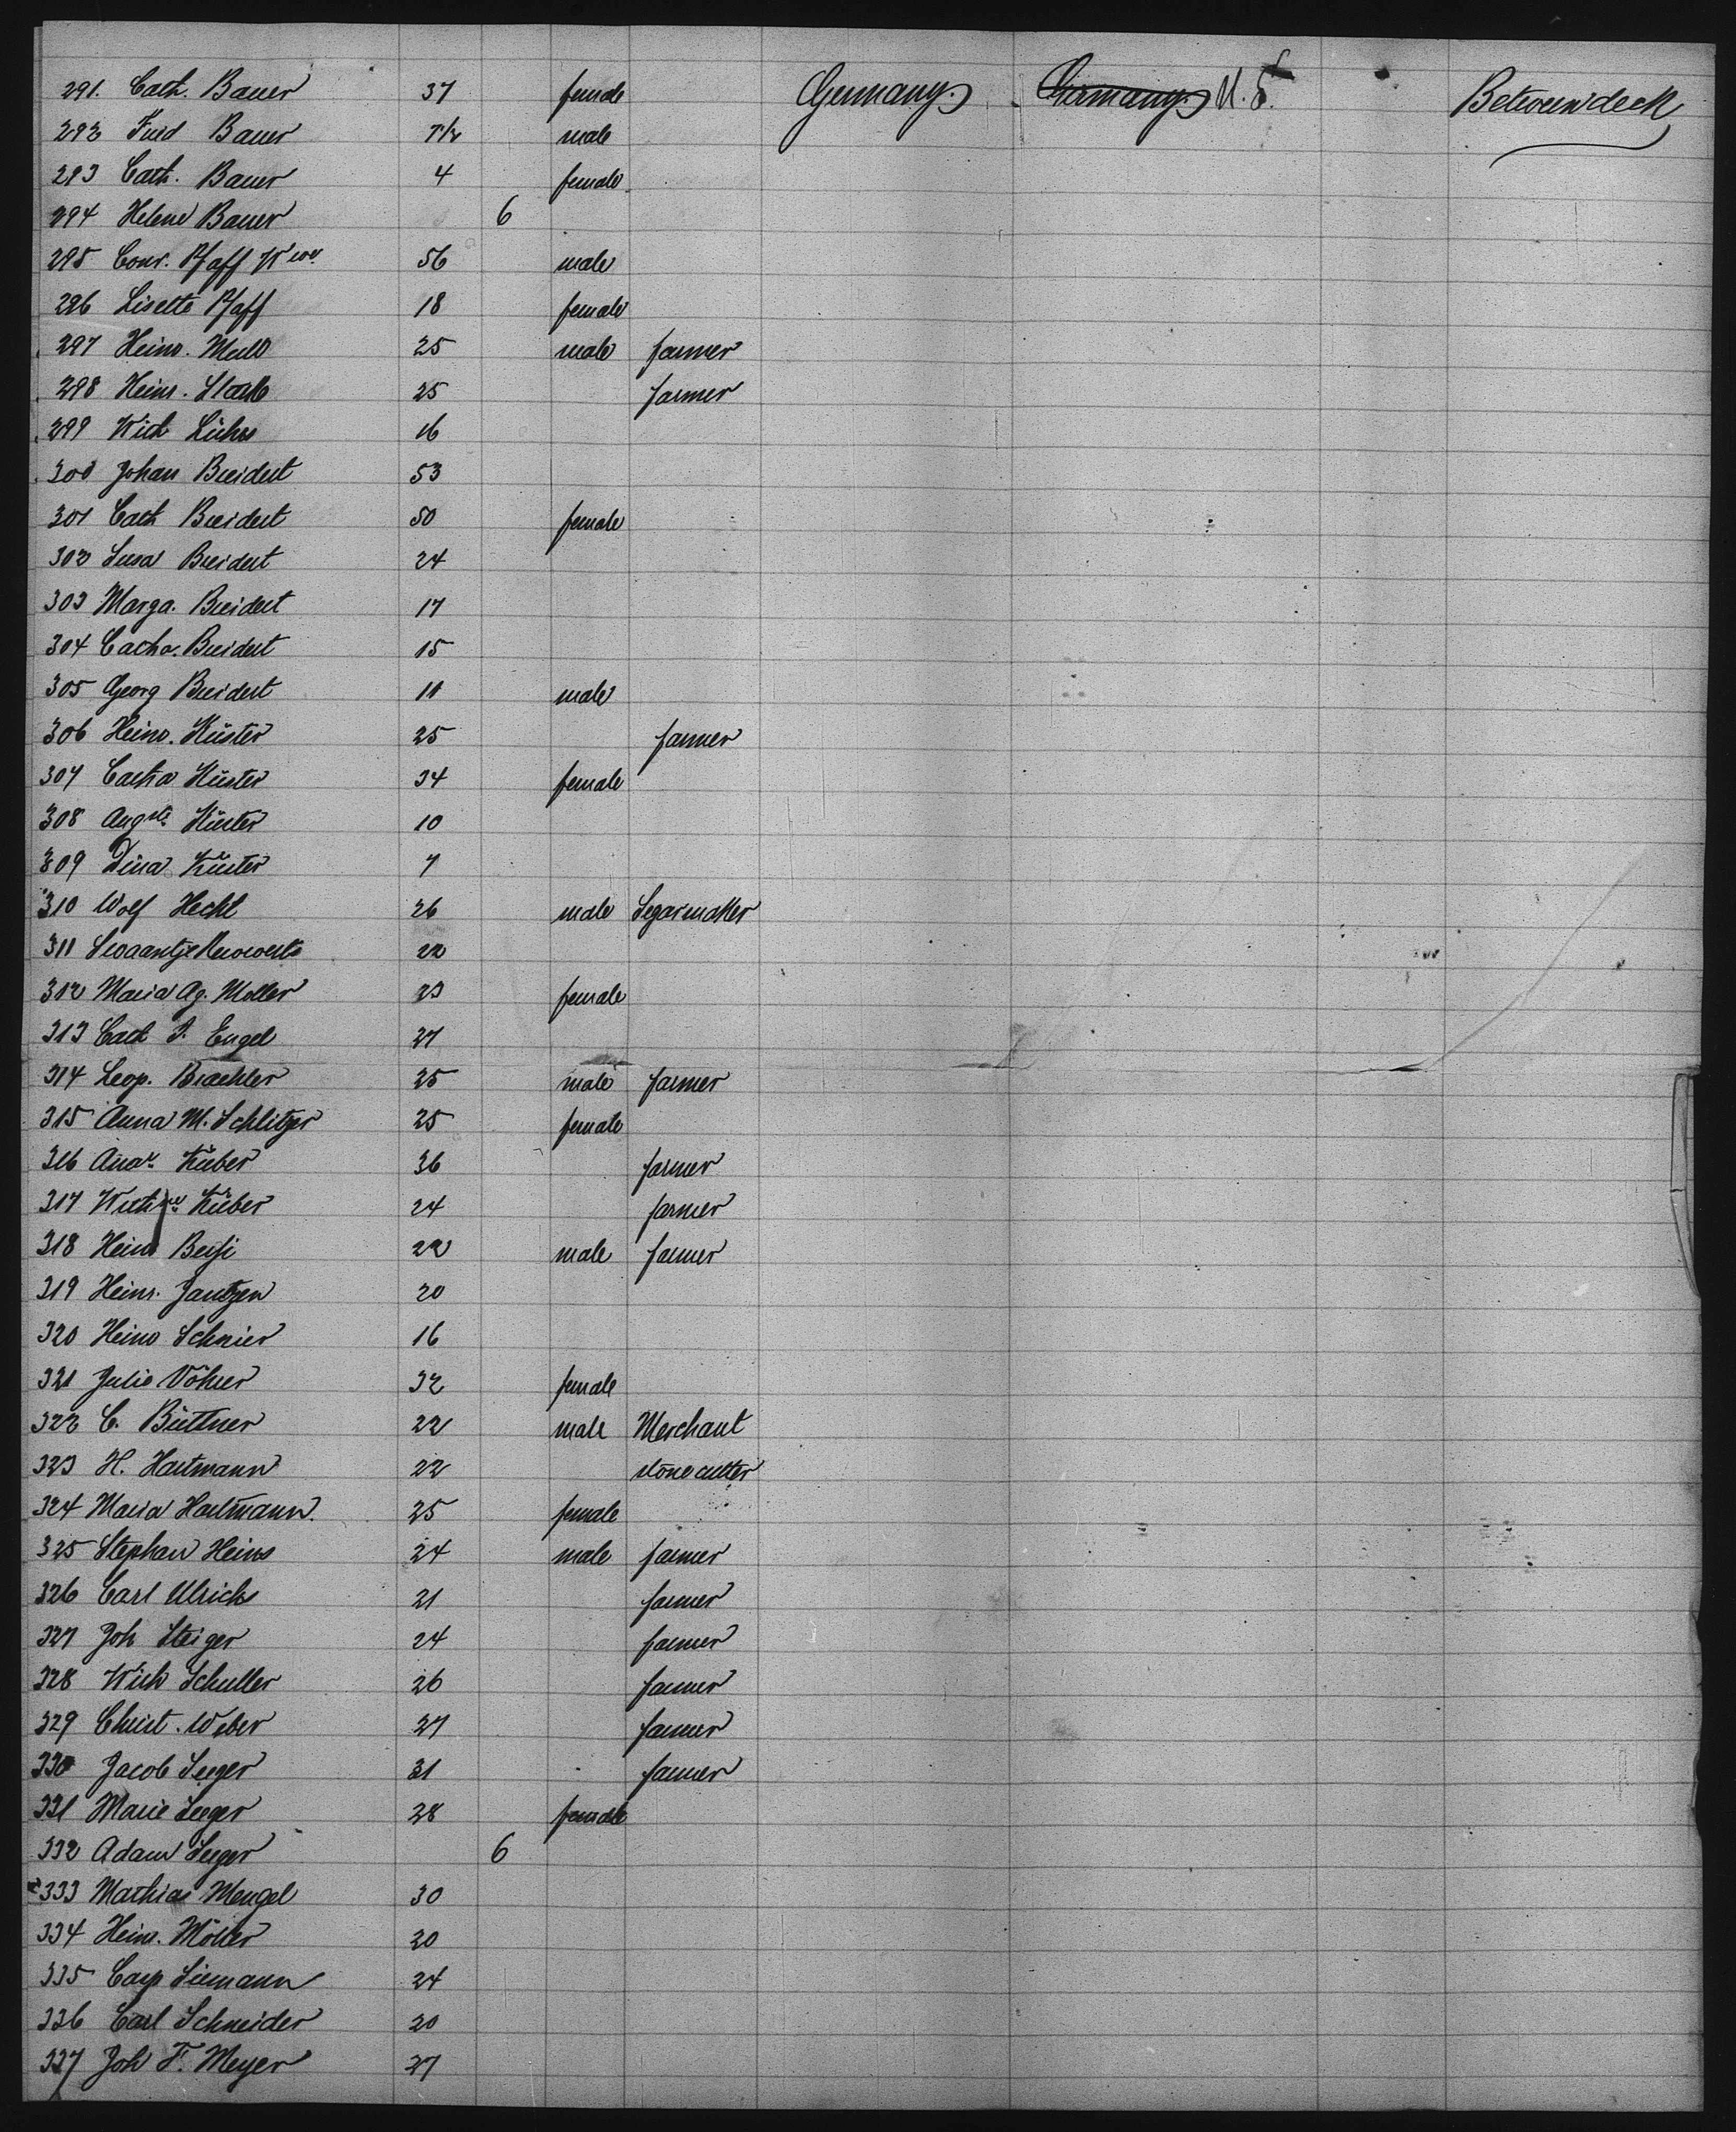 291. Cath. Bauer 37 female Germany Germany U.S. Betweendeck
292 Bauer 7½ male
293 Cath. Bauer 4 female
294 Helene Bauer 6
295 Conr. Pfaff 56 male
296 Lisette Pfaff 18 female
297 Heinr. 25 male farmer
298 Heinr. 25 farmer
299 16
300 Johan Breidert 53
301 Cath Breidert 50 female
302 Susa Breidert 24
303 Marga. Breidert 17
304 Catha. Breidert 15
305 Georg Breidert 11 male
306 Heinr. Küster 25 farmer
307 Catha Küster 34 female
308 Augste Küster 10
309 Dina Küster 7
310 Wolf Hecht 26 male Segarmaker
311 22
312 Maria Ag. Moller 23 female
313 Cath Engel 27
314 Leop. Braehler 25 male farmer
315 Anna M. Schlitzer 25 female
316 Küber 36 farmer
317 Küber 24 farmer
318 Heinr 22 male farmer
319 Heinr. Jantzen 20
320 Heinr Schnier 16
321 Julie 32 female
322 C. Büttner 22 male Merchant
323 H. Hartmann 22 stonecutter
324 Maria Hartmann. 25 female
325 Stephan Heins 24 male farmer
326 Carl Ulrich 21 farmer
327 Joh Steiger 24 farmer
328 Wilh Schuller 26 farmer
329 Christ. Weber 27 farmer
330 Jacob Seeger 31 farmer
331 Marie Seeger 28 female
332 Adam Seeger 6
333 Mathias Mengel 30
334 Heinr. Möller 20
335 Casp Siemann 24
336 Carl Schneider 20
337 Joh F. Meyer 27